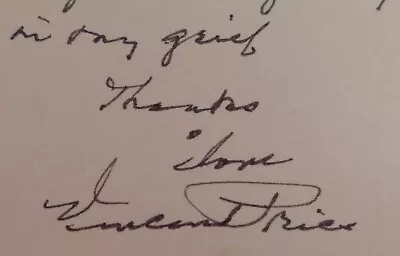 in my grief
Thanks
love
Vincent Price